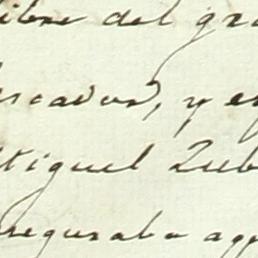 ibre del gra
scador, y es
Miguel Zub
seguraba aqu